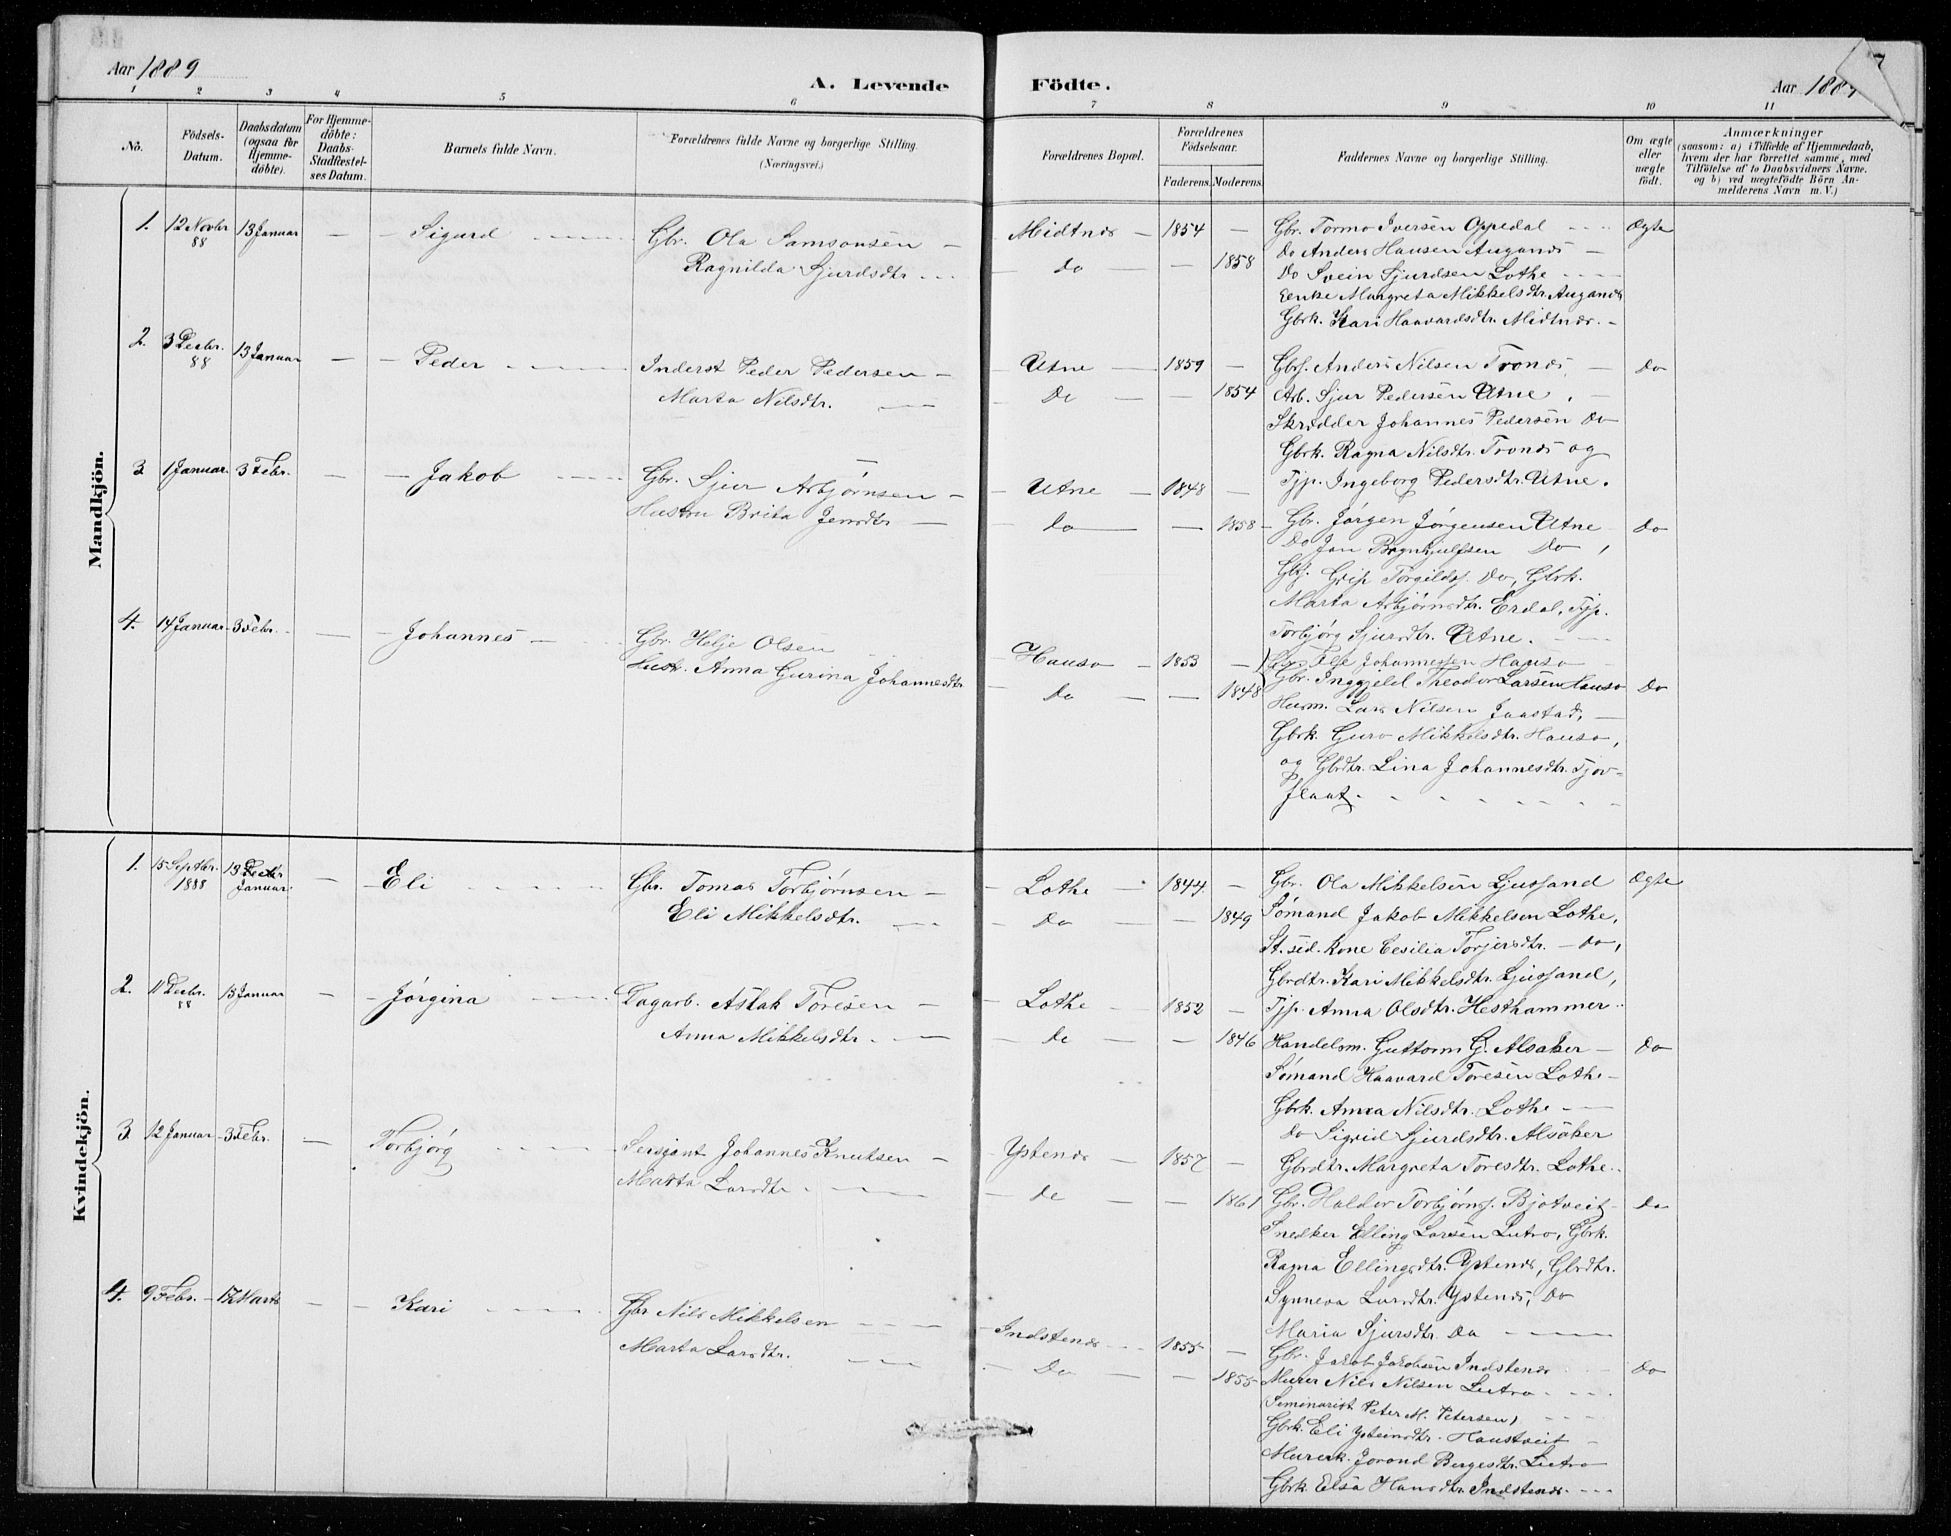 Aar 1889
A. Levende
Födte.
Aar 188
7
1 2 3 4 5 6 7 8 9 10 11
No.
Födsels-
Datum.
Daabsdatum
(ogsaa for
Hjemme-
döbte).
For Hjemme-
döbte:
Daabs-
Stadfæstel-
ses Datum.
Barnets fulde Navn.
Forældrenes fulde Navne og borgerlige Stilling.
(Næringsvei.)
Forældrenes Bopæl.
Forældrenes
Födselsaar.
Faderens. Moderens.
Faddernes Navne og borgerlige Stilling.
Om ægte
eller
uægte
födt.
Anmærkninger
(saasom: a) i Tilfælde af Hjemmedaab,
hvem der har forrettet samme, med
Tilföielse af to Daabsvidners Navne.
og b) ved uægtefödte Börn An-
melderens Navn m. V.)
Mandkjön.
1. 12 Novbr 88 13 Januar — — Sigurd
Gbr. Ola Samsonsen —
Ragnilda Sjurdsdtr
Midtnes — 1854 —
— Do — — 1858
Gbr. Tormo Iversen Oppedal
Do Anders Hansen Augands —
Do Svein Sjurdsen Lothe
Enke Margreta Mikkelsdtr. Augands
Gbrk. Kari Haavardsdtr. Midtnes. —
Ægte
2. 3 Decbr. 88 13 Januar — — Peder
Inderst Peder Pedersen —
Marta Nilsdtr. —
— Utne — 1859 —
— Do — — 1854
Gbs. Anders Nilsen Tronds. —
Arb. Sjur Pedersen Utne. —
Skrædder Johannes Pedersen Do
Gbrk. Ragna Nilsdtr. Tronds og
Tjp. Ingeborg Pedersdtr. Utne.
Do
3 1 Januar. 3 Febr. — — Jakob
Gbr. Sjur Asbjørnsen —
Hustru Brita Jensdtr —
— Utne — 1848 —
— Do — — 1858 —
Gbr. Jørgen Jørgensen Utne
Do Jon Do,
Gbs. Grip Torgilds. Do, Gbrk.
Marta Asbjørnsdtr. Erdal, Tjp.
Torbjørg Sjursdtr. Utne.
Do
4. 14 Januar — 3 Febr. — — Johannes —
Gbr. Helje Olsen
Hustr. Anna Gurina Johannesdtr
— Hauso — 1853 —
— Do — — 1848
Johannessen Hauso
Gbr. Inggjeld Theodor Larsen Hauso
Husm. Lars Nilsen Jaastad, —
Gbrk. Guro Mikkelsdtr. Hauso,
og Gbdtr. Lina Johannesdtr. Tjov-
flaat.
Do
Kvindekjön.
1. 15 Septbr. 1888 13 Januar — Eli
Gbr. Tomas Torbjørnsen —
Eli Mikkelsdtr.
— Lothe — 1844 —
— Do — 1849
Gbr. Ola Mikkelsen Ljussand
Sømand Jakob Mikkelsen Lothe,
St. sed. Kone Cesilia Torjersdtr. — Do,
Gbrdtr. Kari Mikkelsdtr. Ljussand,
Tjp. Anna Olsdtr. Hesthammer
Ægte
2. 11 Decbr. 88 13 Januar — — Jørgina
Dagarb. Aslak Toresen —
Anna Mikkelsdtr. —
— Lothe — 1852 —
— Do — — 1846
Handelsm. Guttorm G. Alsaker —
Sømand Haavard Toresen Lothe —
Gbrk. Anna Nilsdtr. Lothe —
Do Sigrid Sjurdsdtr. Alsaker
Gbrdtr. Margreta Toresdtr. Lothe.
Do
3. 12 Januar — 3 Febr. — Torbjørg
Sersjant Johannes Knutsen —
Marta Larsdtr.
— Ystenes — 1857 —
— Do — — 1861
Gbr. Haldor Torbjørns. Bjotveit
Snedker Elling Larsen Lutro, Gbrk.
Ragna Ellingsdtr. Ystenes, Gbrdtr.
Synneva Larsdtr. Ystenes, Do
Maria Sjursdtr. Do
Do
4. 9 Febr. — 17 Marts — — Kari
Gbr Nils Mikkelsen
Marta Larsdtr.
— Indstenes 1855 —
— Do — — 1855
Gbr. Jakob Jakobsen Indstenes
Murer Nils Nilsen Lutro
Seminarist Peter M. Petersen,
Gbrk. Eli Ysteinsdtr. Haustveit —
Murerk. Jorond Bergesdtr. Lutro
Gbrk Elsa Hansdtr. Indstenes.
Do